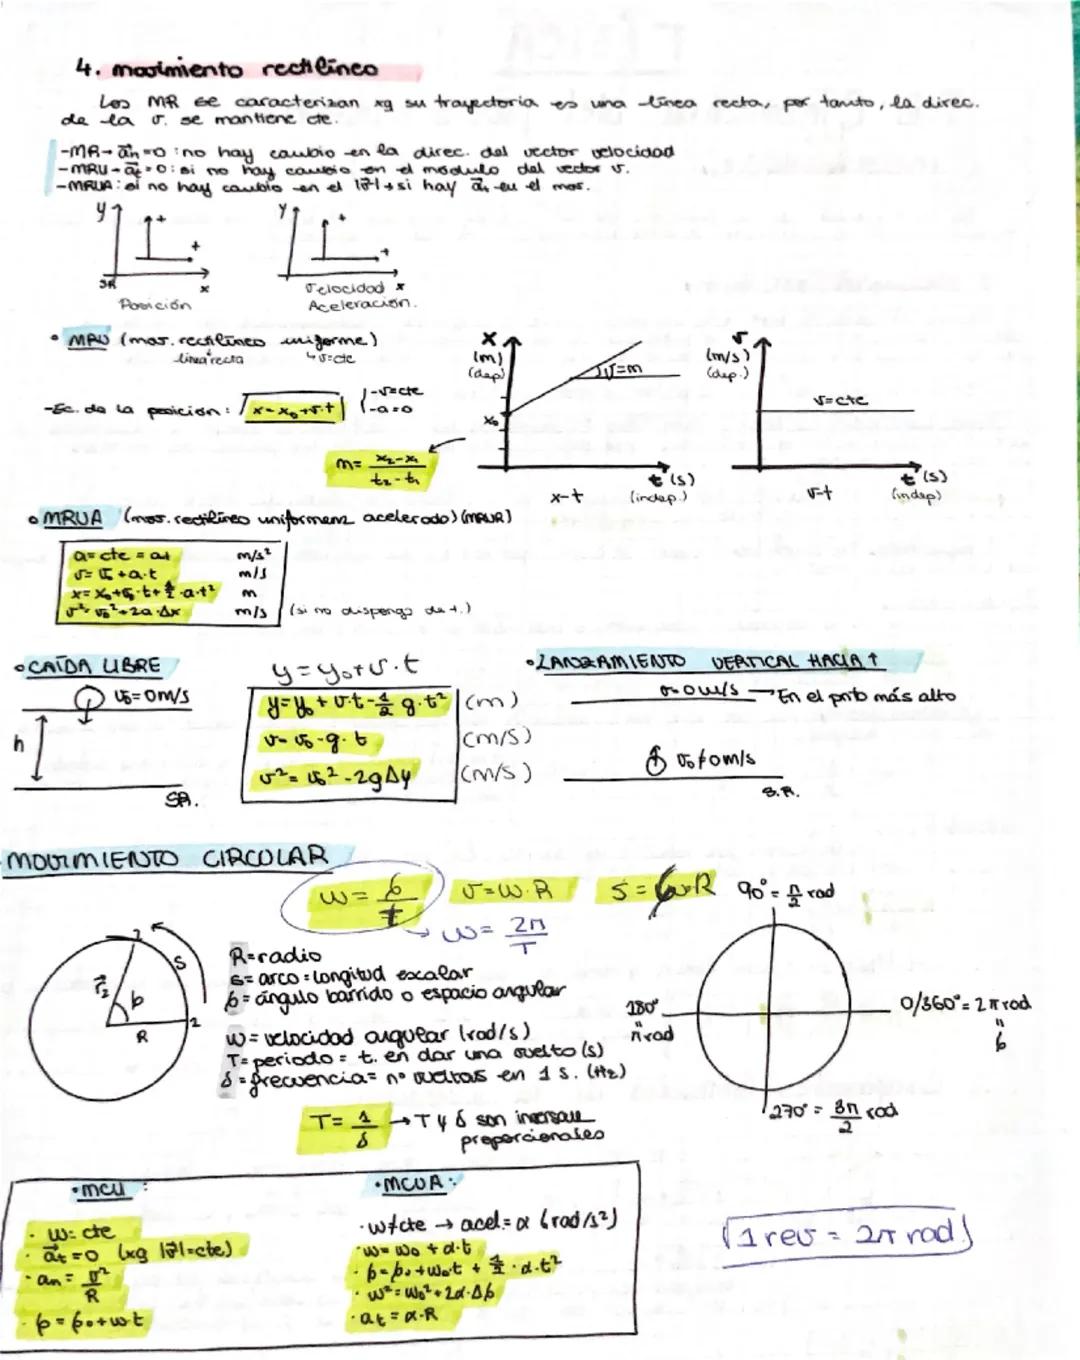 4. movimiento rectilíneo
Los MR se caracterizan xq su trayectoria es una línea recta, por tanto, la direc.
de la v. se mantiene cte.
-MR→ a⃗n=0: no hay cambio en la direc. del vector velocidad
-MRU→ a⃗t=0: si no hay cambio en el módulo del vector v.
-MRUA: si no hay cambio en el |v⃗|→si hay a⃗t en el mov.
y + + SR x
Posición
y + + x
Velocidad
Aceleración.
• MRU (mov. rectilíneo uniforme)
línea recta ↳v=cte
-Ec. de la posición: x=x₀+v·t
-v=cte
-a=0
m= x₂-x₁ / t₂-t₁
x (m) (dep) x₀ v=m t (s) (indep.)
x-t
v (m/s) (dep.) v=cte t (s) (indep)
v-t
• MRUA (mov. rectilíneo uniformem. acelerado) (MRUR)
a=cte=at m/s²
v=v₀+a·t m/s
x=x₀+v₀·t+½·a·t² m
v²=v₀²+2a·Δx m/s (si no dispongo de t.)
• CAÍDA LIBRE
v₀=0m/s
h
SR.
y=y₀+v·t
y=y₀+v·t-½g·t² (m)
v=v₀-g·t (m/s)
v²=v₀²-2gΔy (m/s)
• LANZAMIENTO VERTICAL HACIA ↑
v=0m/s → En el pnto más alto
v₀≠0m/s
S.R.
MOVIMIENTO CIRCULAR
w= φ/t v=w·R s=φ·R
→ w= 2π/T
2 S r⃗₂ φ R 1
R=radio
s=arco=longitud escalar
φ=ángulo barrido o espacio angular
w=velocidad angular (rad/s)
T=periodo= t. en dar una vuelta (s)
f=frecuencia= nº vueltas en 1 s. (Hz)
T= 1/f → T y f son inversam. proporcionales
90°= π/2 rad
180° = π rad
0/360°= 2π rad
"
φ
270°= 3π/2 rad
• MCU:
· w=cte
· a⃗t=0 (xq |v⃗|=cte)
· an= v²/R
· φ=φ₀+w·t
• MCUA:
· w≠cte → acel=α (rad/s²)
· w=w₀+α·t
· φ=φ₀+w₀·t+½·α·t²
· w²=w₀²+2α·Δφ
· at=α·R
1 rev = 2π rad